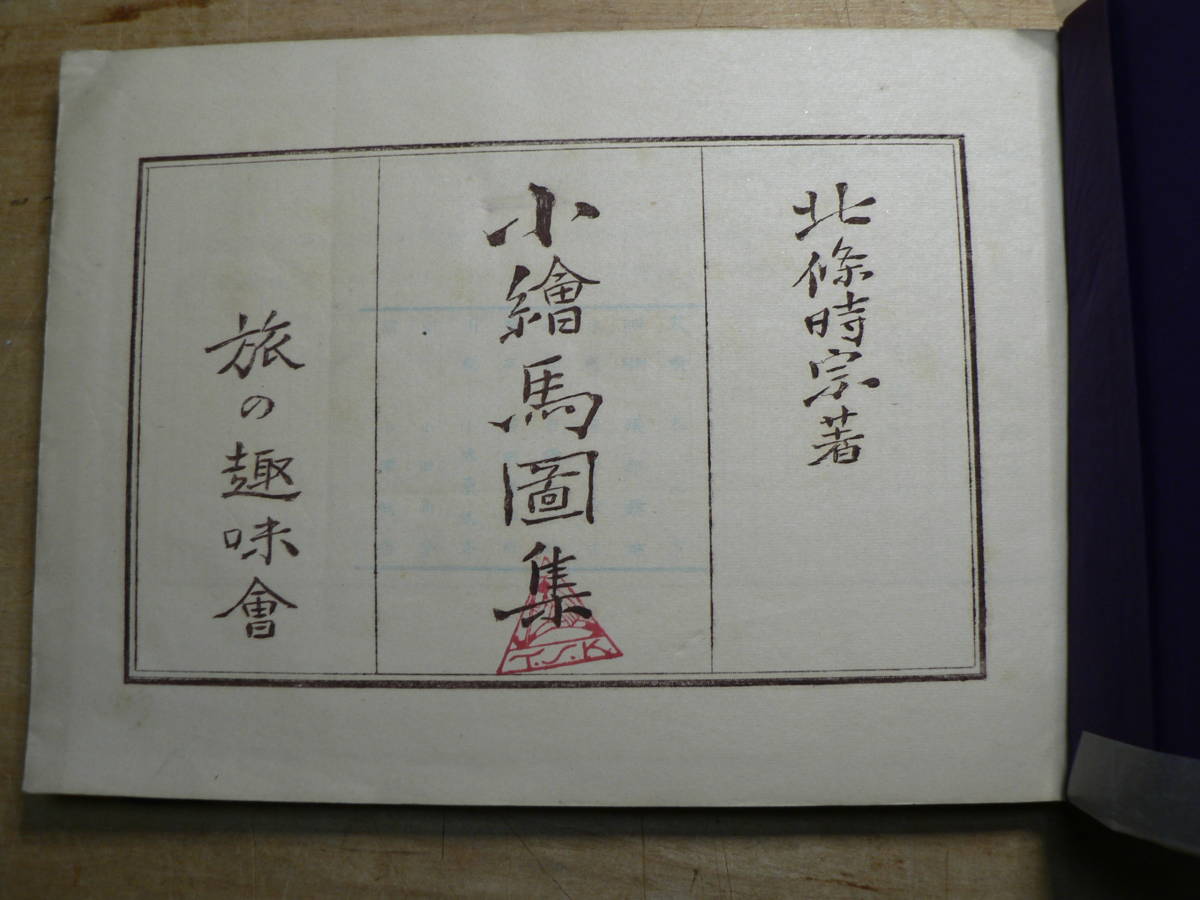 北條時宗著
小繪馬圖集
T.S.K.
旅の趣味會